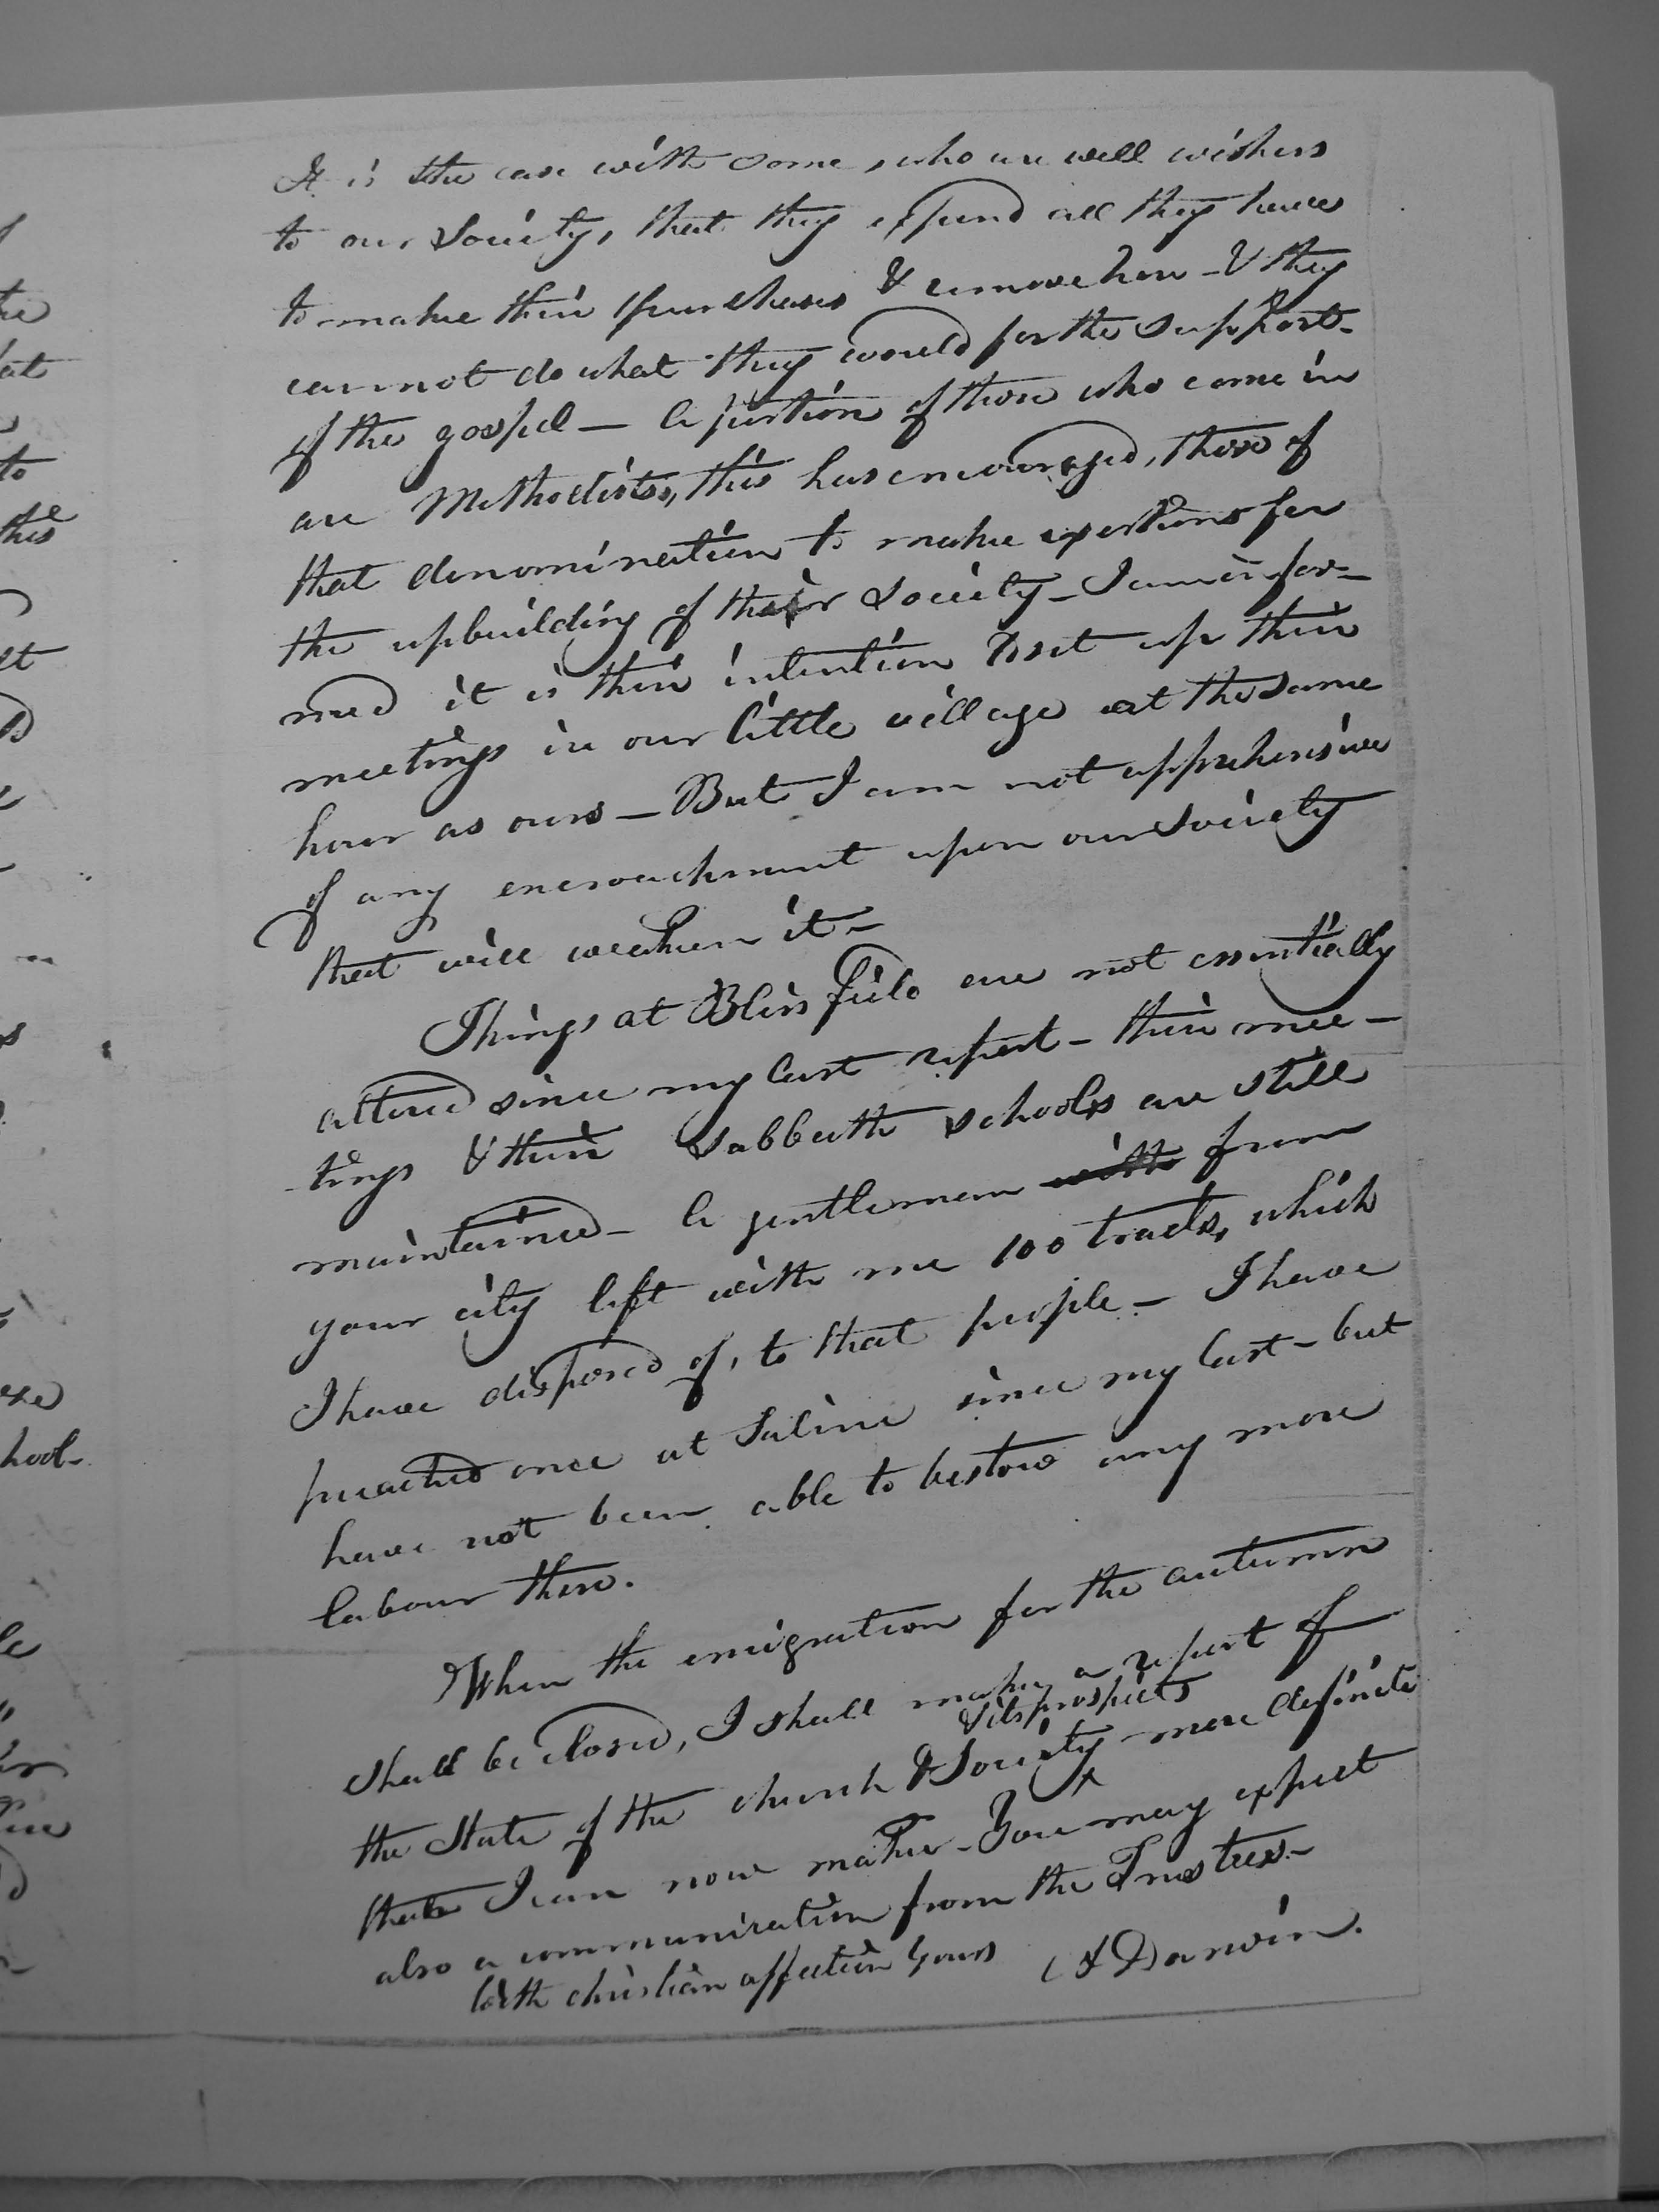 It is the case with some, who are well wishers
to our Society, that they expend all they have
to make their purchases & remove here - & they
cannot do what they would for the support
of the gospel — A portion of those who come in
are Methodists, this has encouraged, those of
that denomination to make exertions for
the upbuilding of their Society - I am infor-
med it is their intention to set up their
meetings in our little village at the same
hour as ours — But I am not apprehensive
of any encroachment upon our Society
that will weaken it -
Things at Blissfield are not essentially
altered since my last report - their mee-
tings & their Sabbath schools are still
maintained - A gentleman with from
your city left with me 100 tracts, which
I have disposed of, to that people - I have
preached once at Saline since my last - but
have not been able to bestow any more
labour there.
When the emigration for the autumn
shall be closed, I shall make a report of
& its prospects
the State of the church & Society more definite
than I can now make - You may expect
also a communication from the Trustees -
With christian affection yours A Darwin.
to
this
hool-